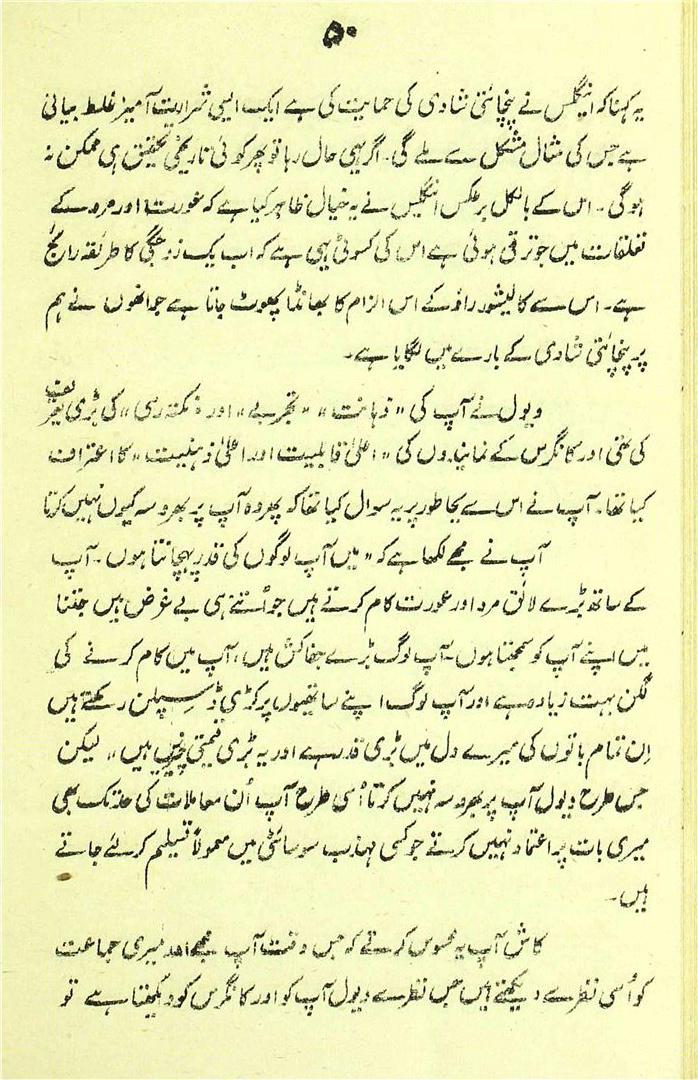 ۵۰
یہ کہنا کہ انیگلس نے پنچائتی شادی کی حمایت کی ہے ایک ایسی شرارت آمیز غلط بیانی
ہے جس کی مثال مشکل سے ملے گی۔ اگر یہی حال رہا تو پھر کوئی تاریخی تحقیق ہی ممکن نہ
ہوگی۔ اس کے بالکل برعکس انگلیس نے یہ خیال ظاہر کیا ہے کہ عورت اور مرد کے
تعلقات میں جو ترقی ہوئی ہے اس کی کسوٹی یہی ہے کہ اب یک زوجگی کا طریقہ رائج
ہے۔ اس سے کالیشور راؤ کے اس الزام کا بھانڈا پھوٹ جاتا ہے جو انھوں نے ہم
پر پنچائتی شادی کے بارے میں لگایا ہے۔
ویول نے آپ کی "ذہانت" "تجربے" اور "نکتہ رسی" کی بڑی تعریف
کی تھی اور کانگرس کے نمایندوں کی "اعلیٰ قابلیت اور اعلیٰ ذہنیت" کا اعتراف
کیا تھا۔ آپ نے اس سے بجا طور پر یہ سوال کیا تھا کہ پھر وہ آپ پر بھروسہ کیوں نہیں کرتا
آپ نے مجھے لکھا ہے کہ "میں آپ لوگوں کی قدر پہچانتا ہوں۔ آپ
کے ساتھ بڑے لائق مرد اور عورت کام کرتے ہیں جو اُتنے ہی بے غرض ہیں جتنا
میں اپنے آپ کو سمجھتا ہوں۔ آپ لوگ بڑے جفاکش ہیں، آپ میں کام کرنے کی
لگن بہت زیادہ ہے اور آپ لوگ اپنے ساتھیوں پر کڑی ڈسپلن رکھتے ہیں
اِن تمام باتوں کی میرے دل میں بڑی قدر ہے اور یہ بڑی قیمتی چیزیں ہیں" لیکن
جس طرح ویول آپ پر بھروسہ نہیں کرتا اُسی طرح آپ اُن معاملات کی حد تک بھی
میری بات پہ اعتماد نہیں کرتے جو کسی مہذب سوسائٹی میں معمولاً تسلیم کر لئے جاتے
ہیں۔
کاش آپ یہ محسوس کرتے کہ جس وقت آپ مجھے اور میری جماعت
کو اُسی نظر سے دیکھتے ہیں جس نظر سے ویول آپ کو اور کانگرس کو دیکھتا ہے تو